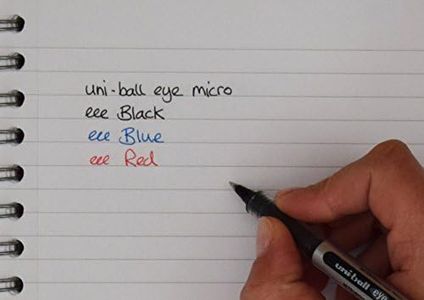 uni-ball eye micro
eee Black
eee Blue
eee Red
uni-ball eye